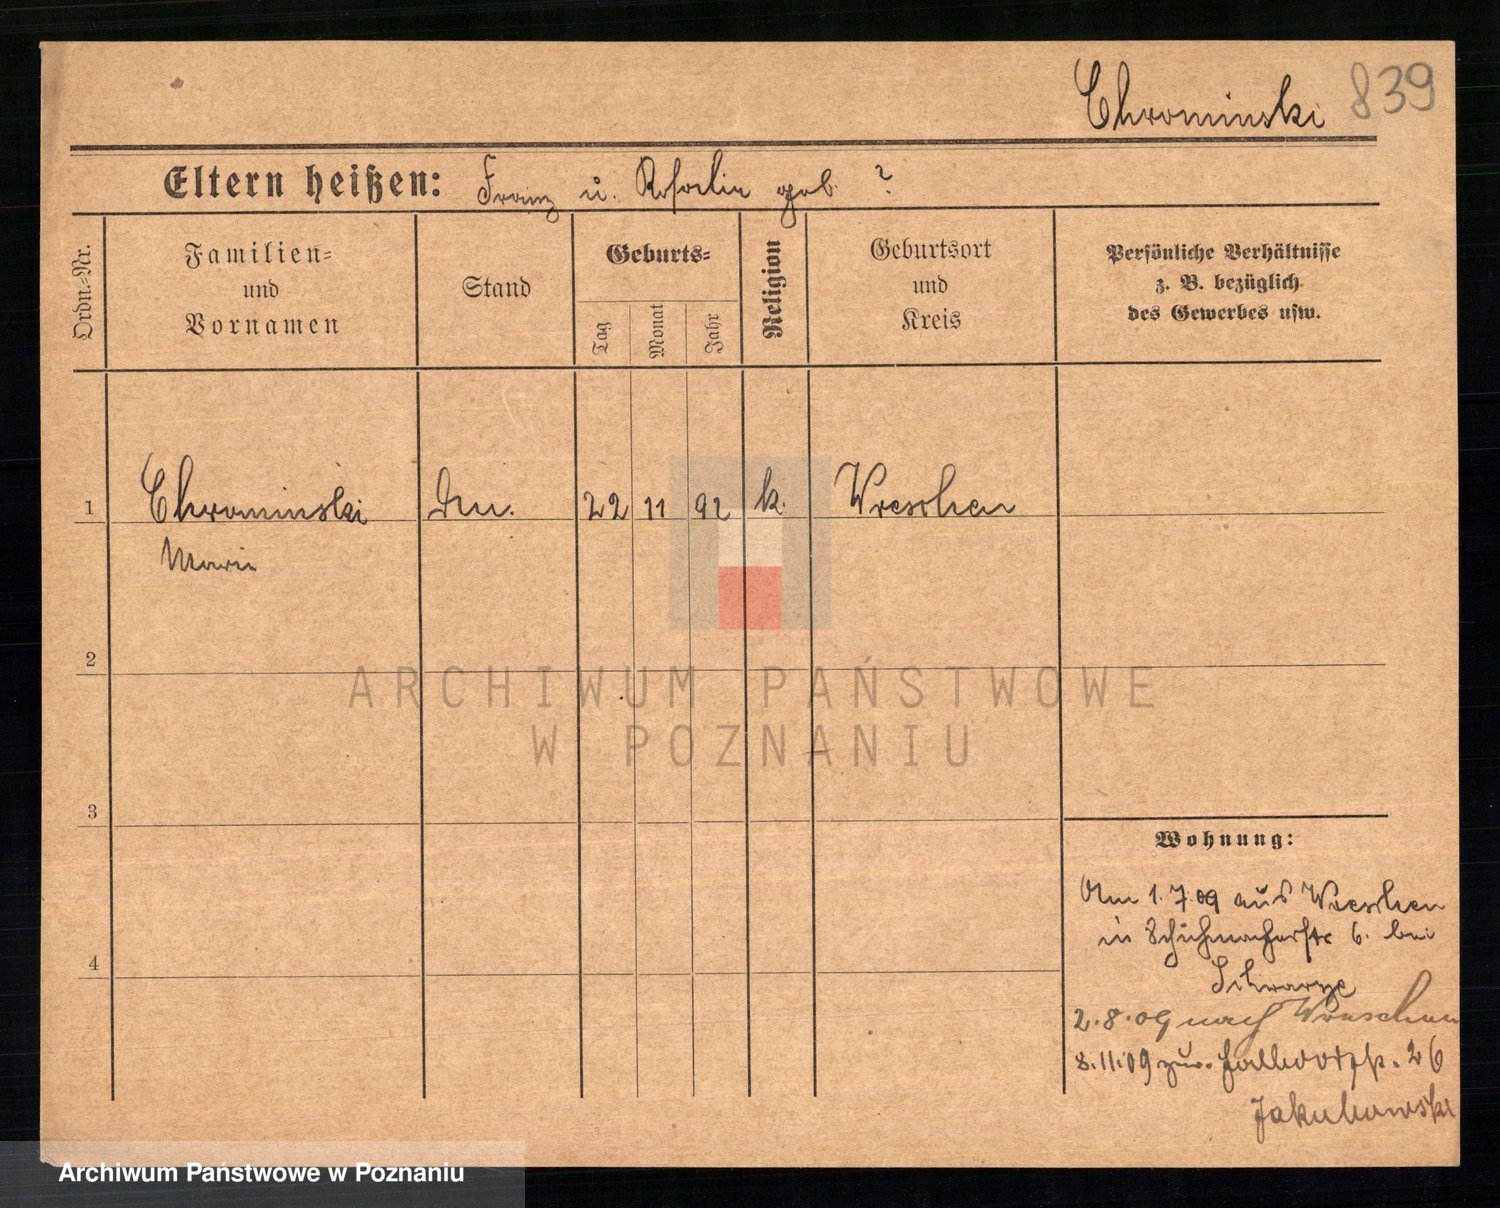 Chrominski 839
Eltern heißen: Franz u. Rosalie geb. ?
Ordn.-Nr.
Familien-
und
Vornamen
Stand
Geburts-
Tag
Monat
Jahr
Religion
Geburtsort
und
Kreis
Persönliche Verhältnisse
z. B. bezüglich
des Gewerbes usw.
1 Chrominski 22 11 92 k. Wreschen
Marie
2
ARCHIWUM PAŃSTWOWE
W POZNANIU
3
Wohnung:
Am 1.7.09 aus Wreschen
in Schuhmacherstr 6. bei
4
Schwarze
2.8.09 nach Wreschen
8.11.09 zur. 26
Jakubowski
Archiwum Państwowe w Poznaniu